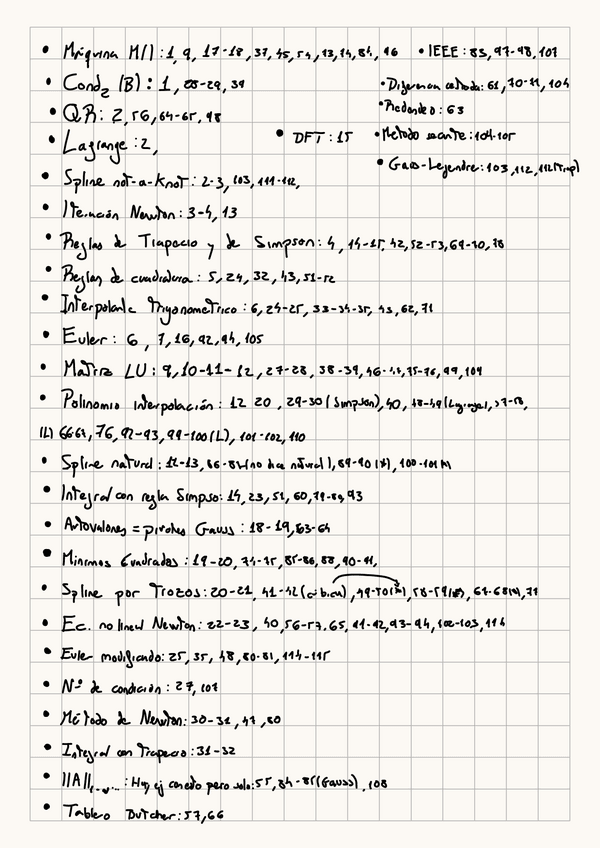 • Máquina M() : 1, 9, 17-18, 37, 45, 54, 73, 74, 84, 96 • IEEE : 83, 97-98, 107
• Cond₂ (B) : 1, 28-29, 39 • Diferencia : 61, 70-71, 104
• QR : 2, 56, 64-65, 98 • Redondeo : 63
• Lagrange : 2, • DFT : 15 • Método secante : 104-105
• Gauss-Legendre : 103, 112, 112
• Spline not-a-knot : 2-3, 103, 111-112,
• Iteración Newton : 3-4, 13
• Reglas de Trapecio y de Simpson : 4, 14-15, 42, 52-53, 69-70, 78
• Reglas de cuadratura : 5, 24, 32, 43, 51-52
• Interpolante Trigonometrico : 6, 24-25, 33-34-35, 43, 62, 71
• Euler : 6, 7, 16, 92, 94, 105
• Matriz LU : 9, 10-11-12, 27-28, 38-39, 46-47, 75-76, 99, 109
• Polinomio interpolación : 12 20, 29-30 (Simpson), 40, 48-49 (Lagrange), 57-58,
(L) 66-67, 76, 92-93, 99-100 (L), 101-102, 110
• Spline natural : 12-13, 86-87 (no dice natural), 89-90 (*), 100-101
• Integral con regla Simpso : 14, 23, 51, 60, 79-80, 93
• Autovalores = pivotes Gauss : 18-19, 63-64
• Minimos Cuadrados : 19-20, 74-75, 85-86, 88, 90-91,
• Spline por Trozos : 20-21, 41-42 (cúbica), 49-50 (*), 58-59 (*), 67-68 (*), 77
• Ec. no lineal Newton : 22-23, 40, 56-57, 65, 91-92, 93-94, 102-103, 114
• Euler modificado : 25, 35, 48, 80-81, 114-115
• Nº de condición : 27, 107
• Método de Newton : 30-31, 47, 80
• Integral con Trapecio : 31-32
• ||A|| : Hay ej pero solo : 55, 84-85 (Gauss), 108
• Tablero Butcher : 57, 66